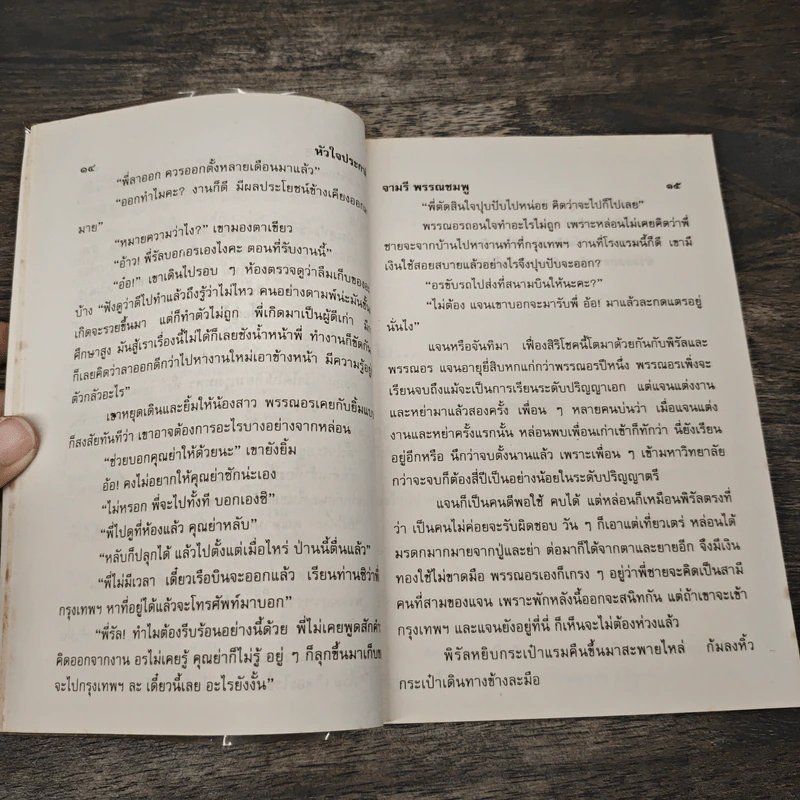 ๑๔
หัวใจประกา
“พี่ลาออก ควรออกตั้งหลายเดือนมาแล้ว”
“ออกทำไมคะ? งานก็ดี มีผลประโยชน์ข้างเคียงออก
มาย”
“หมายความว่าไง?” เขามองตาเขียว
“อ้าว! พี่รัลบอกอรเองไงคะ ตอนที่รับงานนี้”
“อ๋อ!” เขาเดินไปรอบ ๆ ห้องตรวจดูว่าลืมเก็บของ
บ้าง “ฟังดูว่าดีไปทำแล้วถึงรู้ว่าไม่ไหว คนอย่างดามพ์น่ะมัน
เกิดจะรวยขึ้นมา แต่ก็ทำตัวไม่ถูก พี่เกิดมาเป็นผู้ดีเก่า มี
ศึกษาสูง มันสู้เราเรื่องนี้ไม่ได้ก็เลยชังน้ำหน้าพี่ ทำงานก็ขัดกัน
ก็เลยคิดว่าลาออกดีกว่าไปหางานใหม่เอาข้างหน้า มีความรู้อยู่
ตัวกลัวอะไร”
เขาหยุดเดินและยิ้มให้น้องสาว พรรณอรเคยกับยิ้มแบบ
ก็สงสัยทันทีว่า เขาอาจต้องการอะไรบางอย่างจากหล่อน
“ช่วยบอกคุณย่าให้ด้วยนะ” เขายังยิ้ม
อ้อ! คงไม่อยากให้คุณย่าซักน่ะเอง
“ไม่หรอก พี่จะไปทั้งที บอกเองซิ”
“พี่ไปดูที่ห้องแล้ว คุณย่าหลับ”
“หลับก็ปลุกได้ แล้วไปตั้งแต่เมื่อไหร่ ป่านนี้ตื่นแล้ว”
“พี่ไม่มีเวลา เดี๋ยวเรือบินจะออกแล้ว เรียนท่านซิว่าพี่
กรุงเทพฯ หาที่อยู่ได้แล้วจะโทรศัพท์มาบอก”
“พี่รัล! ทำไมต้องรีบร้อนอย่างนี้ด้วย พี่ไม่เคยพูดสักคำ
คิดออกจากงาน อรไม่เคยรู้ คุณย่าก็ไม่รู้ อยู่ ๆ ก็ลุกขึ้นมาเก็บ
จะไปกรุงเทพฯ ละ เดี๋ยวนี้เลย อะไรยังงั้น”
จามรี พรรณชมพู
๑๕
“พี่ตัดสินใจปุบปับไปหน่อย คิดว่าจะไปก็ไปเลย”
พรรณอรถอนใจทำอะไรไม่ถูก เพราะหล่อนไม่เคยคิดว่าพี่
ชายจะจากบ้านไปหางานทำที่กรุงเทพฯ งานที่โรงแรมนี้ก็ดี เขามี
เงินใช้สอยสบายแล้วอย่างไรจึงปุบปับจะออก?
“อรขับรถไปส่งที่สนามบินให้นะคะ?”
“ไม่ต้อง แจนเขาบอกจะมารับพี่ อ้อ! มาแล้วละกดแตรอยู่
นั่นไง”
แจนหรือจันทิมา เฟื่องสิริโชคนี้โตมาด้วยกันกับพิรัลและ
พรรณอร แจนอายุยี่สิบหกแก่กว่าพรรณอรปีหนึ่ง พรรณอรเพิ่งจะ
เรียนจบถึงแม้จะเป็นการเรียนระดับปริญญาเอก แต่แจนแต่งงาน
และหย่ามาแล้วสองครั้ง เพื่อน ๆ หลายคนบ่นว่า เมื่อแจนแต่ง
งานและหย่าครั้งแรกนั้น หล่อนพบเพื่อนเก่าเข้าก็ทักว่า นี่ยังเรียน
อยู่อีกหรือ นึกว่าจบตั้งนานแล้ว เพราะเพื่อน ๆ เข้ามหาวิทยาลัย
กว่าจะจบก็ต้องสี่ปีเป็นอย่างน้อยในระดับปริญญาตรี
แจนก็เป็นคนดีพอใช้ คบได้ แต่หล่อนก็เหมือนพิรัลตรงที่
ว่า เป็นคนไม่ค่อยจะรับผิดชอบ วัน ๆ ก็เอาแต่เที่ยวเตร่ หล่อนได้
มรดกมากมายจากปู่และย่า ต่อมาก็ได้จากตาและยายอีก จึงมีเงิน
ทองใช้ไม่ขาดมือ พรรณอรเองก็เกรง ๆ อยู่ว่าพี่ชายจะคิดเป็นสามี
คนที่สามของแจน เพราะพักหลังนี้ออกจะสนิทกัน แต่ถ้าเขาจะเข้า
กรุงเทพฯ และแจนยังอยู่ที่นี่ ก็เห็นจะไม่ต้องห่วงแล้ว
พิรัลหยิบกระเป๋าแรมคืนขึ้นมาสะพายไหล่ ก้มลงหิ้ว
กระเป๋าเดินทางข้างละมือ